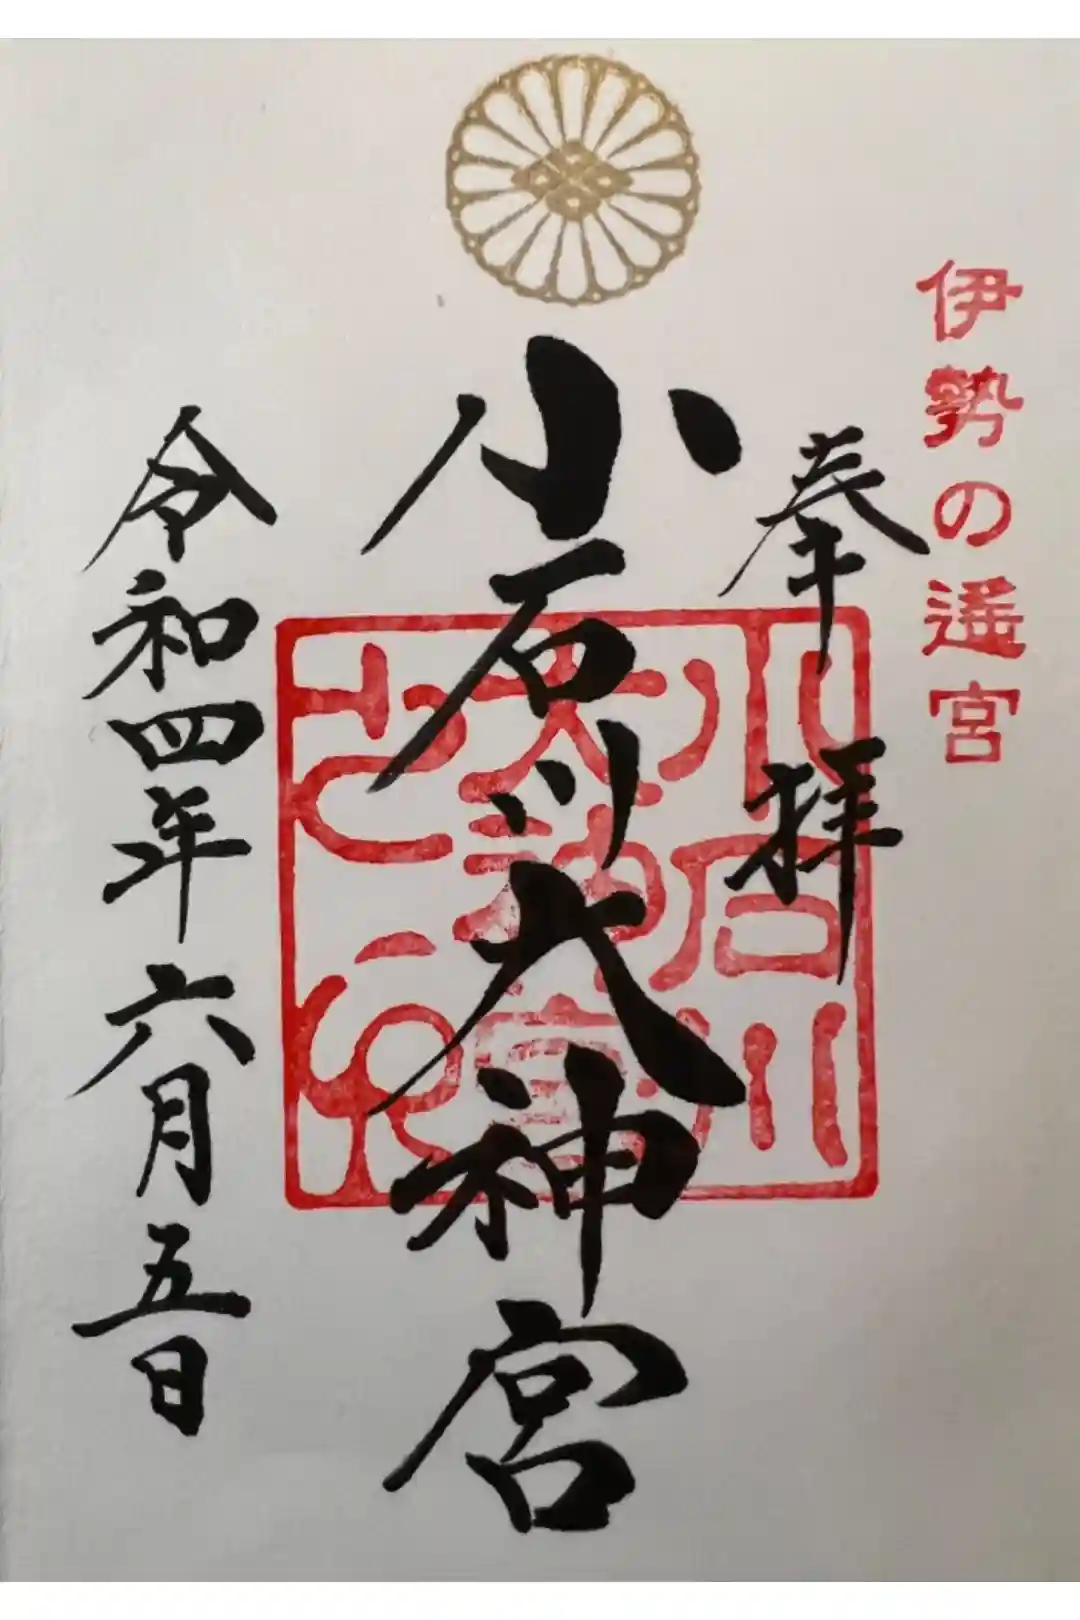 伊勢の遙宮
奉拝
小石川大神宮
小石川大神宮之印
令和四年六月五日